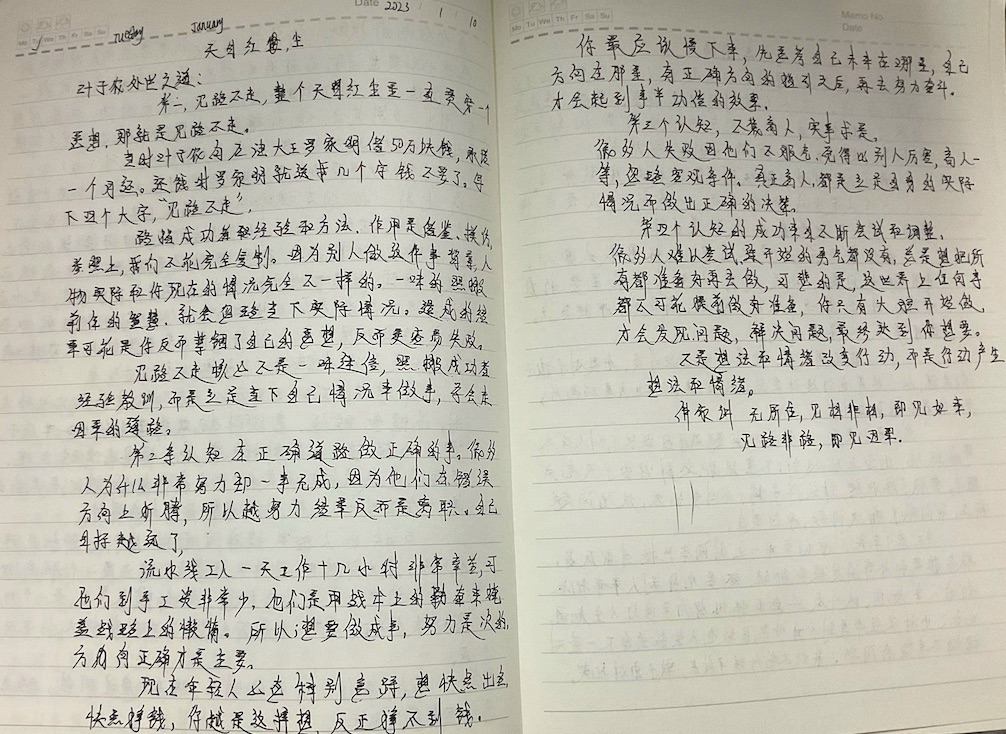 Date 2023 1 10
Mo Tu We Th Fr Sa Su
Tuesday January
天幕红尘
对于农处世之道:
第一,见路不走,整个天幕红尘里一直贯穿一个
思想,那就是见路不走。
当时对于农向石油大王罗家明借50万块钱,承诺
一个月还。还钱时罗家明就送第几个字钱不要了。写
下四个大字,“见路不走”。
路临成功者和经验和方法,作用是借鉴、模仿,
参照上,我们不能完全复制。因为别人做这件事背景,人
物实际和你现在的情况完全不一样的。一味的照搬
前任的智慧,就会忽略当下实际情况。造成的结
果可能是你反而禁锢了自己的思想,反而更容易失败。
见路不走那么不是一味迷信,照搬成功者
经验教训,而是立足当下自己情况来做事,才会走
因果的道路。
第二李认知 在正确道路做正确的事。很多
人为什么非常努力却一事无成,因为他们在错误
方向上折腾,所以越努力结果反而是离职。自己
目标越远了,
流水线工人一天工作十几小时非常辛苦,可
他们到手工资非常少,他们是用战术上的勤奋来掩
盖战略上的懒惰。所以;想要做成事,努力是次的,
方向向正确才是主要。
现在年轻人 总 特别急躁,想快点出名
快点挣钱,你越是这样想,反正挣不到钱。
Mo Tu We Th Fr Sa Su
Memo No.
Date
你最应该慢下来,先思考自己未来在哪里,自己
方向在那里,有正确方向的指引之后,再去努力奋斗。
才会起到事半功倍的效果。
第三个认知,不装高人,实事求是。
很多人失败因他们不服老,觉得比别人厉害,高人一
等,忽略客观条件。真正高人,都是立足自身的实际
情况而做出正确的决策。
第四个认知的成功来自不断尝试和调整。
很多人难以尝试,连开始的勇气都没有,总是想把所
有都准备好再去做,可悲的是,这世界上任何事
都不可能提前做好准备,你只有大胆开始做,
才会发现问题,解决问题,最终达到你想要。
不是想法和情绪改变行动,而是行动产生
想法和情绪。
佛家叫 无所住,见相非相,即见如来,
见路非路,即见因果.